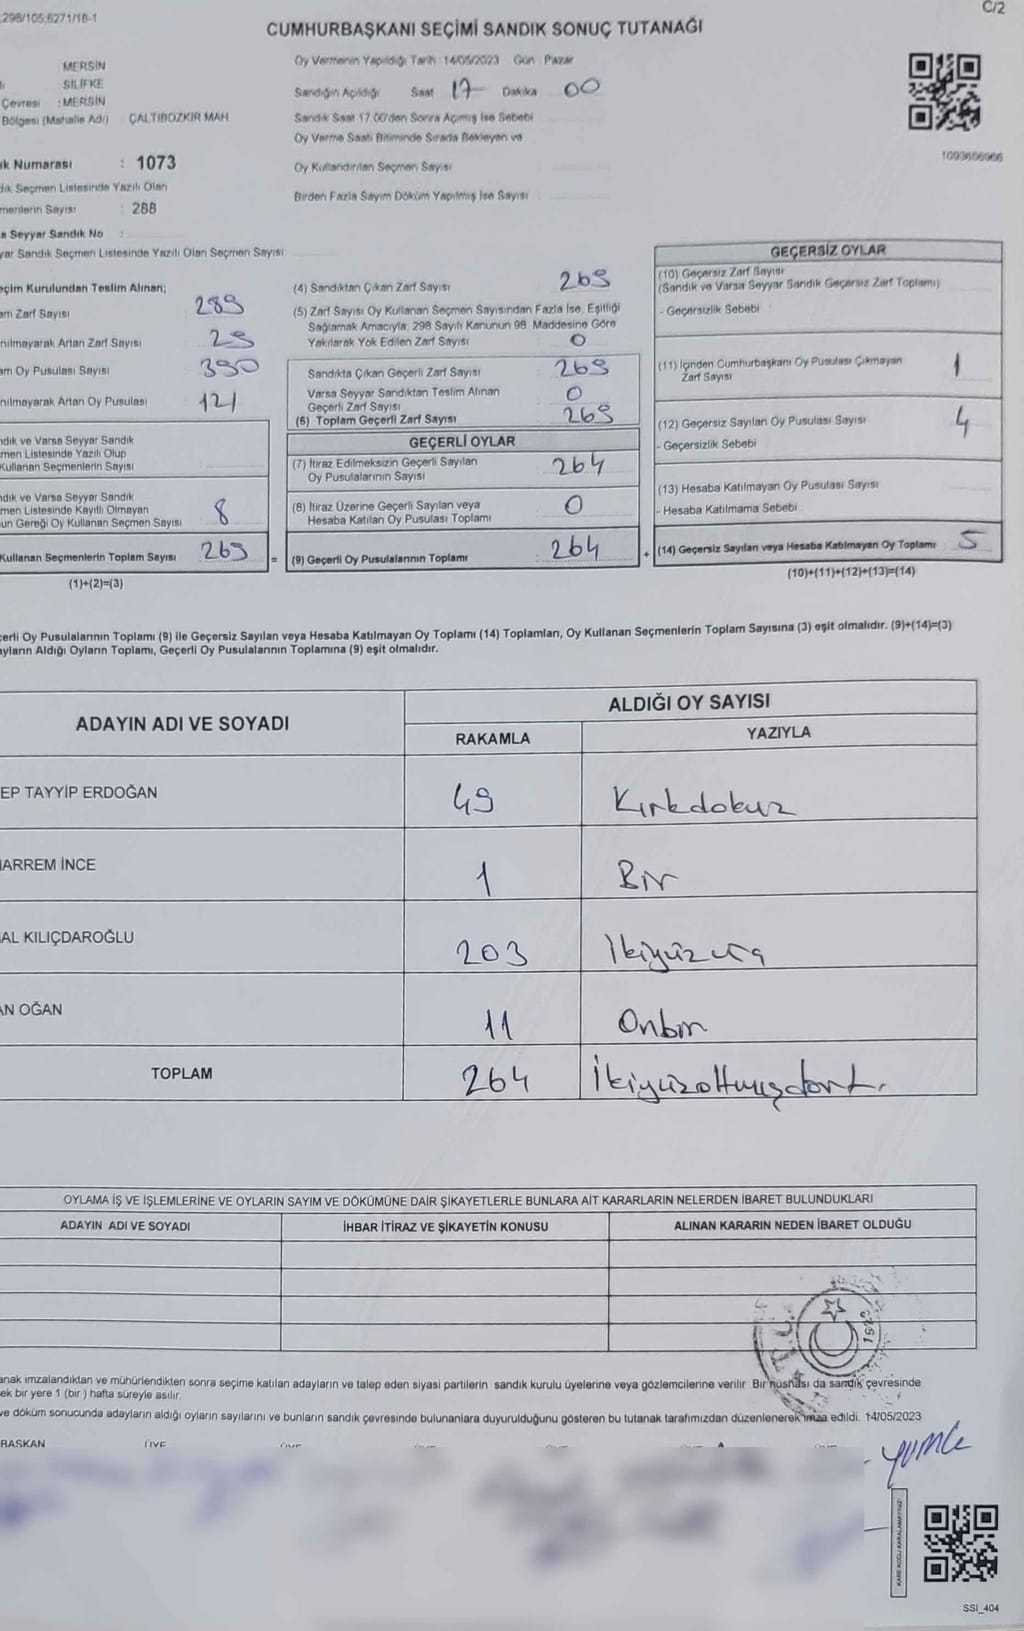 298/105,6271/18-1
C/2
CUMHURBAŞKANI SEÇİMİ SANDIK SONUÇ TUTANAĞI
MERSİN
SİLİFKE
Çevresi : MERSİN
Bölgesi (Mahalle Adı) ÇALTIBOZKIR MAH.
Numarası : 1073
Seçmen Listesinde Yazılı Olan
Sayısı : 288
Seyyar Sandık No :
Sandık Seçmen Listesinde Yazılı Olan Seçmen Sayısı:
Oy Vermenin Yapıldığı Tarih 14/05/2023 Gün Pazar
Sandığın Açıldığı Saat 17 Dakika 00
Sandık Saat 17.00'den Sonra Açılmış İse Sebebi
Oy Verme Saati Bitiminde Sırada Bekleyen ve
Oy Kullandırılan Seçmen Sayısı :
Birden Fazla Sayım Döküm Yapılmış İse Sayısı :
1093656966
Kurulundan Teslim Alınan;
Zarf Sayısı 289
Artan Zarf Sayısı 29
Oy Pusulası Sayısı 390
Artan Oy Pusulası 121
ve Varsa Seyyar Sandık
Listesinde Yazılı Olup
Kullanan Seçmenlerin Sayısı
ve Varsa Seyyar Sandık
Listesinde Kayıtlı Olmayan
Gereği Oy Kullanan Seçmen Sayısı 8
Kullanan Seçmenlerin Toplam Sayısı 269 =
(1)+(2)=(3)
(4) Sandıktan Çıkan Zarf Sayısı 269
(5) Zarf Sayısı Oy Kullanan Seçmen Sayısından Fazla İse, Eşitliği
Sağlamak Amacıyla, 298 Sayılı Kanunun 98. Maddesine Göre
Yakılarak Yok Edilen Zarf Sayısı 0
Sandıkta Çıkan Geçerli Zarf Sayısı 269
Varsa Seyyar Sandıktan Teslim Alınan
Geçerli Zarf Sayısı 0
(6) Toplam Geçerli Zarf Sayısı 269
GEÇERLİ OYLAR
(7) İtiraz Edilmeksizin Geçerli Sayılan
Oy Pusulalarının Sayısı 264
(8) İtiraz Üzerine Geçerli Sayılan veya
Hesaba Katılan Oy Pusulası Toplamı 0
(9) Geçerli Oy Pusulalarının Toplamı 264 +
GEÇERSİZ OYLAR
(10) Geçersiz Zarf Sayısı
(Sandık ve Varsa Seyyar Sandık Geçersiz Zarf Toplamı)
- Geçersizlik Sebebi :
(11) İçinden Cumhurbaşkanı Oy Pusulası Çıkmayan
Zarf Sayısı 1
(12) Geçersiz Sayılan Oy Pusulası Sayısı 4
- Geçersizlik Sebebi
(13) Hesaba Katılmayan Oy Pusulası Sayısı
- Hesaba Katılmama Sebebi :
(14) Geçersiz Sayılan veya Hesaba Katılmayan Oy Toplamı 5
(10)+(11)+(12)+(13)=(14)
Oy Pusulalarının Toplamı (9) ile Geçersiz Sayılan veya Hesaba Katılmayan Oy Toplamı (14) Toplamları, Oy Kullanan Seçmenlerin Toplam Sayısına (3) eşit olmalıdır. (9)+(14)=(3)
Aldığı Oyların Toplamı, Geçerli Oy Pusulalarının Toplamına (9) eşit olmalıdır.
ADAYIN ADI VE SOYADI
ALDIĞI OY SAYISI
RAKAMLA YAZIYLA
EP TAYYİP ERDOĞAN 49 Kırkdokuz
ARREM İNCE 1 Bir
AL KILIÇDAROĞLU 203 İkiyüzüç
AN OĞAN 11 Onbir
TOPLAM 264 İkiyüzaltmışdört.
OYLAMA İŞ VE İŞLEMLERİNE VE OYLARIN SAYIM VE DÖKÜMÜNE DAİR ŞİKAYETLERLE BUNLARA AİT KARARLARIN NELERDEN İBARET BULUNDUKLARI
ADAYIN ADI VE SOYADI İHBAR İTİRAZ VE ŞİKAYETİN KONUSU ALINAN KARARIN NEDEN İBARET OLDUĞU
T.C.
anak imzalandıktan ve mühürlendikten sonra seçime katılan adayların ve talep eden siyasi partilerin sandık kurulu üyelerine veya gözlemcilerine verilir. Bir nüshası da sandık çevresinde
ek bir yere 1 (bir ) hafta süreyle asılır.
ve döküm sonucunda adayların aldığı oyların sayılarını ve bunların sandık çevresinde bulunanlara duyurulduğunu gösteren bu tutanak tarafımızdan düzenlenerek imza edildi. 14/05/2023
BAŞKAN ÜYE
KARE KODU KARALAMAYINIZ!
SSI_404